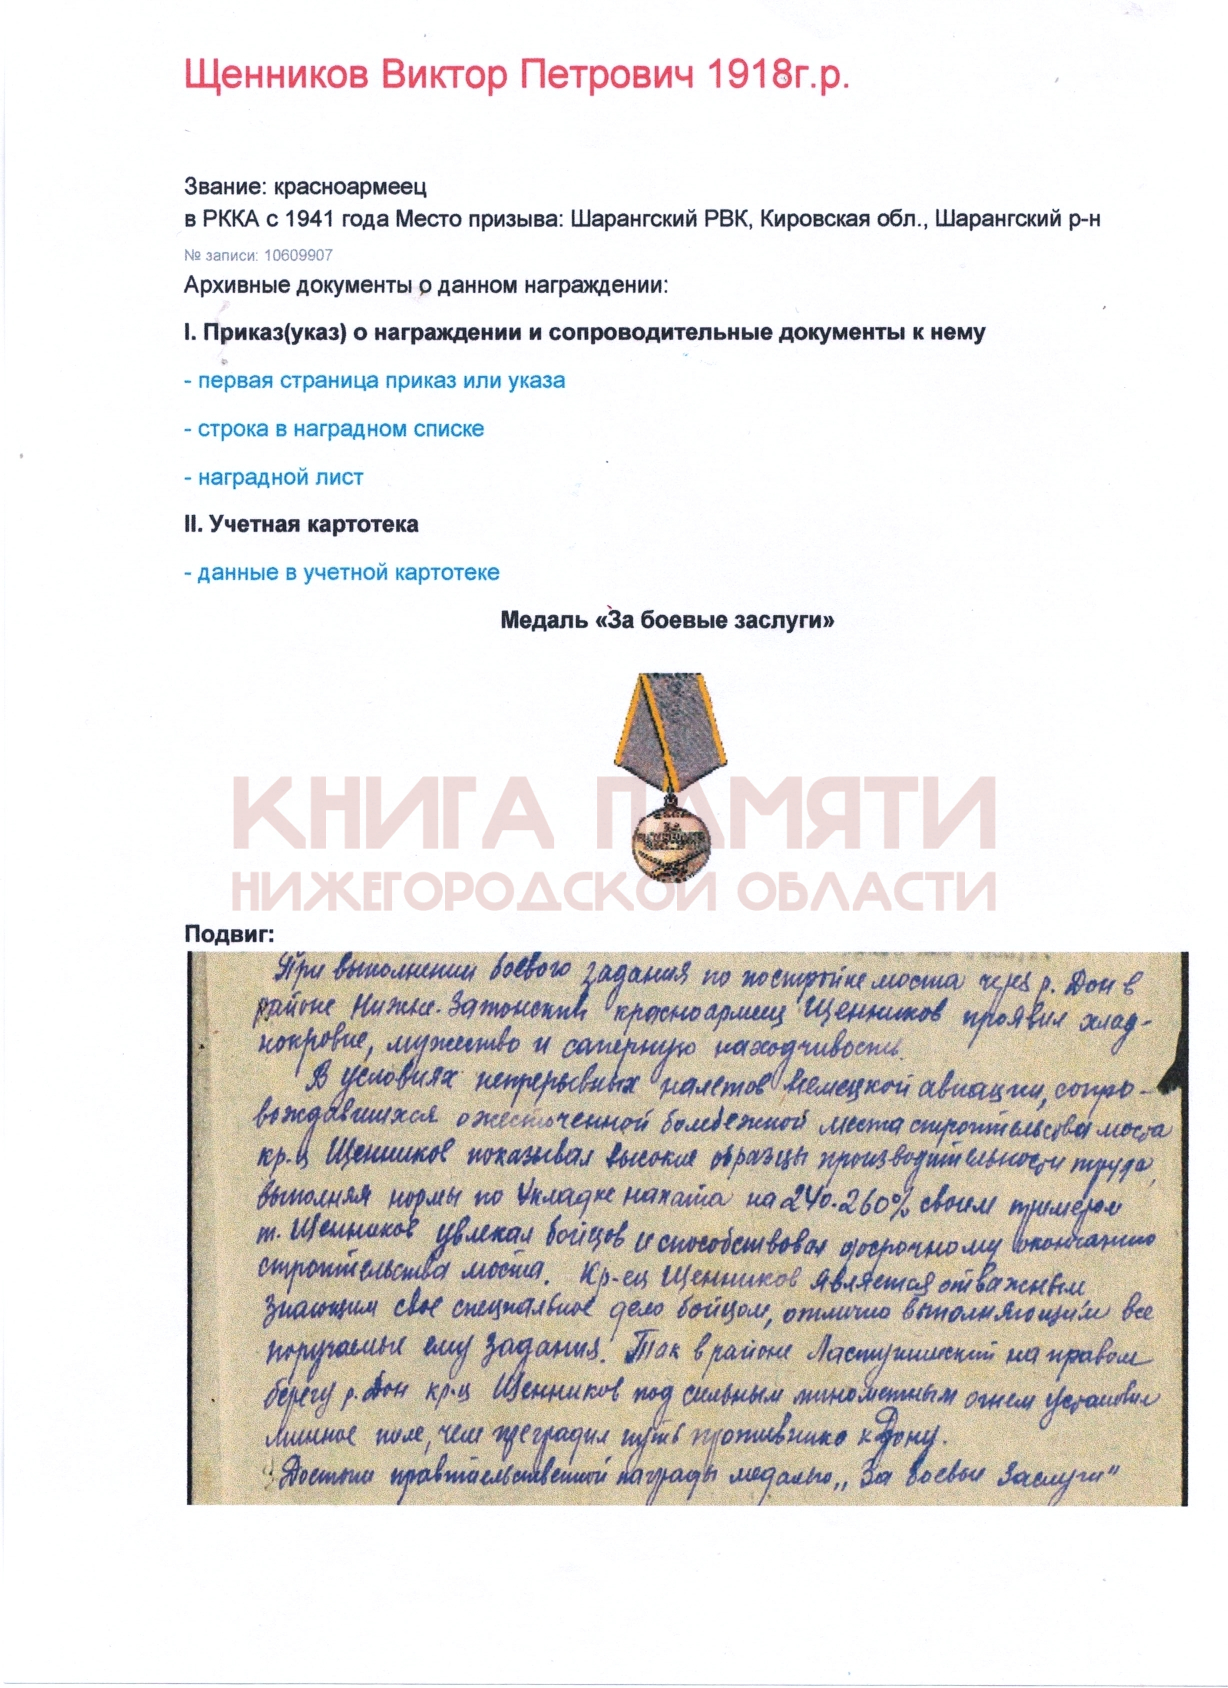 Щенников Виктор Петрович 1918г.р.
Звание: красноармеец
в РККА с 1941 года Место призыва: Шарангский РВК, Кировская обл., Шарангский р-н
№ записи: 10609907
Архивные документы о данном награждении:
I. Приказ(указ) о награждении и сопроводительные документы к нему
- первая страница приказ или указа
- строка в наградном списке
- наградной лист
II. Учетная картотека
- данные в учетной картотеке
Медаль «За боевые заслуги»
КНИГА ПАМЯТИ
НИЖЕГОРОДСКОЙ ОБЛАСТИ
Подвиг:
При выполнении боевого задания по постройке моста через р. Дон в
районе Нижне-Затонский красноармеец Щенников проявил хлад-
нокровие, мужество и саперную находчивость.
В условиях непрерывных налетов немецкой авиации, сопро-
вождавшихся ожесточенной бомбежкой места строительства моста
кр-ц Щенников показывал высокие образцы производительности труда,
выполняя нормы по укладке наката на 240-260% своим примером
т. Щенников увлекал бойцов и способствовал досрочному окончанию
строительства моста. Кр-ец Щенников является отважным
знающим свое специальное дело бойцом, отлично выполняющим все
поручаемые ему задания. Так в районе на правом
берегу р. Дон кр-ц Щенников под сильным минометным огнем установил
минное поле, чем преградил путь противнику к Дону.
Достоин правительственной награды медалью „За боевые заслуги"